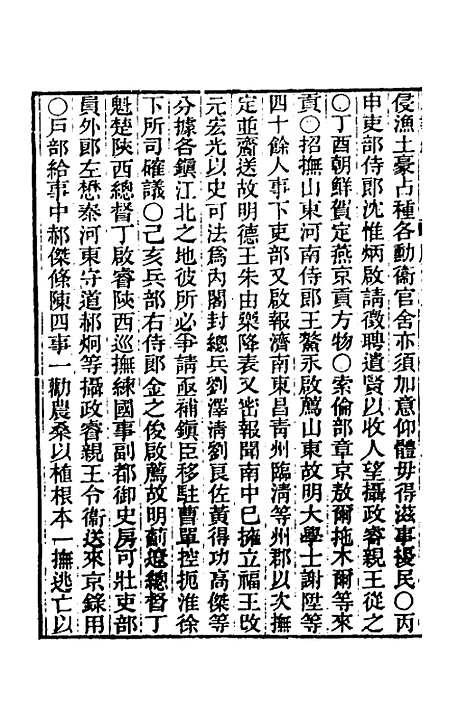 侵漁土豪占種各動衞官舍亦須加意仰體毋得滋事擾民○丙
申吏部侍郎沈惟炳啟請徵聘遺賢以收人望攝政睿親王從之
○丁酉朝鮮賀定燕京貢方物○索倫部章京敖爾拖木爾等來
貢○招撫山東河南侍郎王鰲永啟薦山東故明大學士謝陞等
四十餘人事下吏部又啟報濟南東昌青州臨清等州郡以次撫
定並齎送故明德王朱由㰒降表又密報聞南中已擁立福王改
元宏光以史可法爲內閣封總兵劉澤清劉良佐黃得功高傑等
分據各鎮江北之地彼所必爭請亟補鎮臣移駐曹單控扼淮徐
下所司確議○己亥兵部右侍郎金之俊啟薦故明薊遼總督丁
魁楚陝西總督丁啟睿陝西巡撫練國事副都御史房可壯吏部
員外郎左懋泰河東守道郝炯等攝政睿親王令衞送來京錄用
○戸部給事中郝傑條陳四事一勸農桑以植根本一撫逃亡以